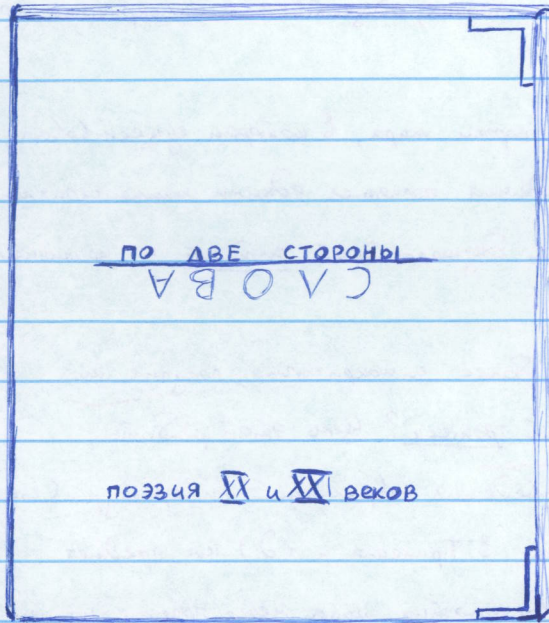 ПО ДВЕ СТОРОНЫ
СЛОВА
поэзия XX и XXI веков